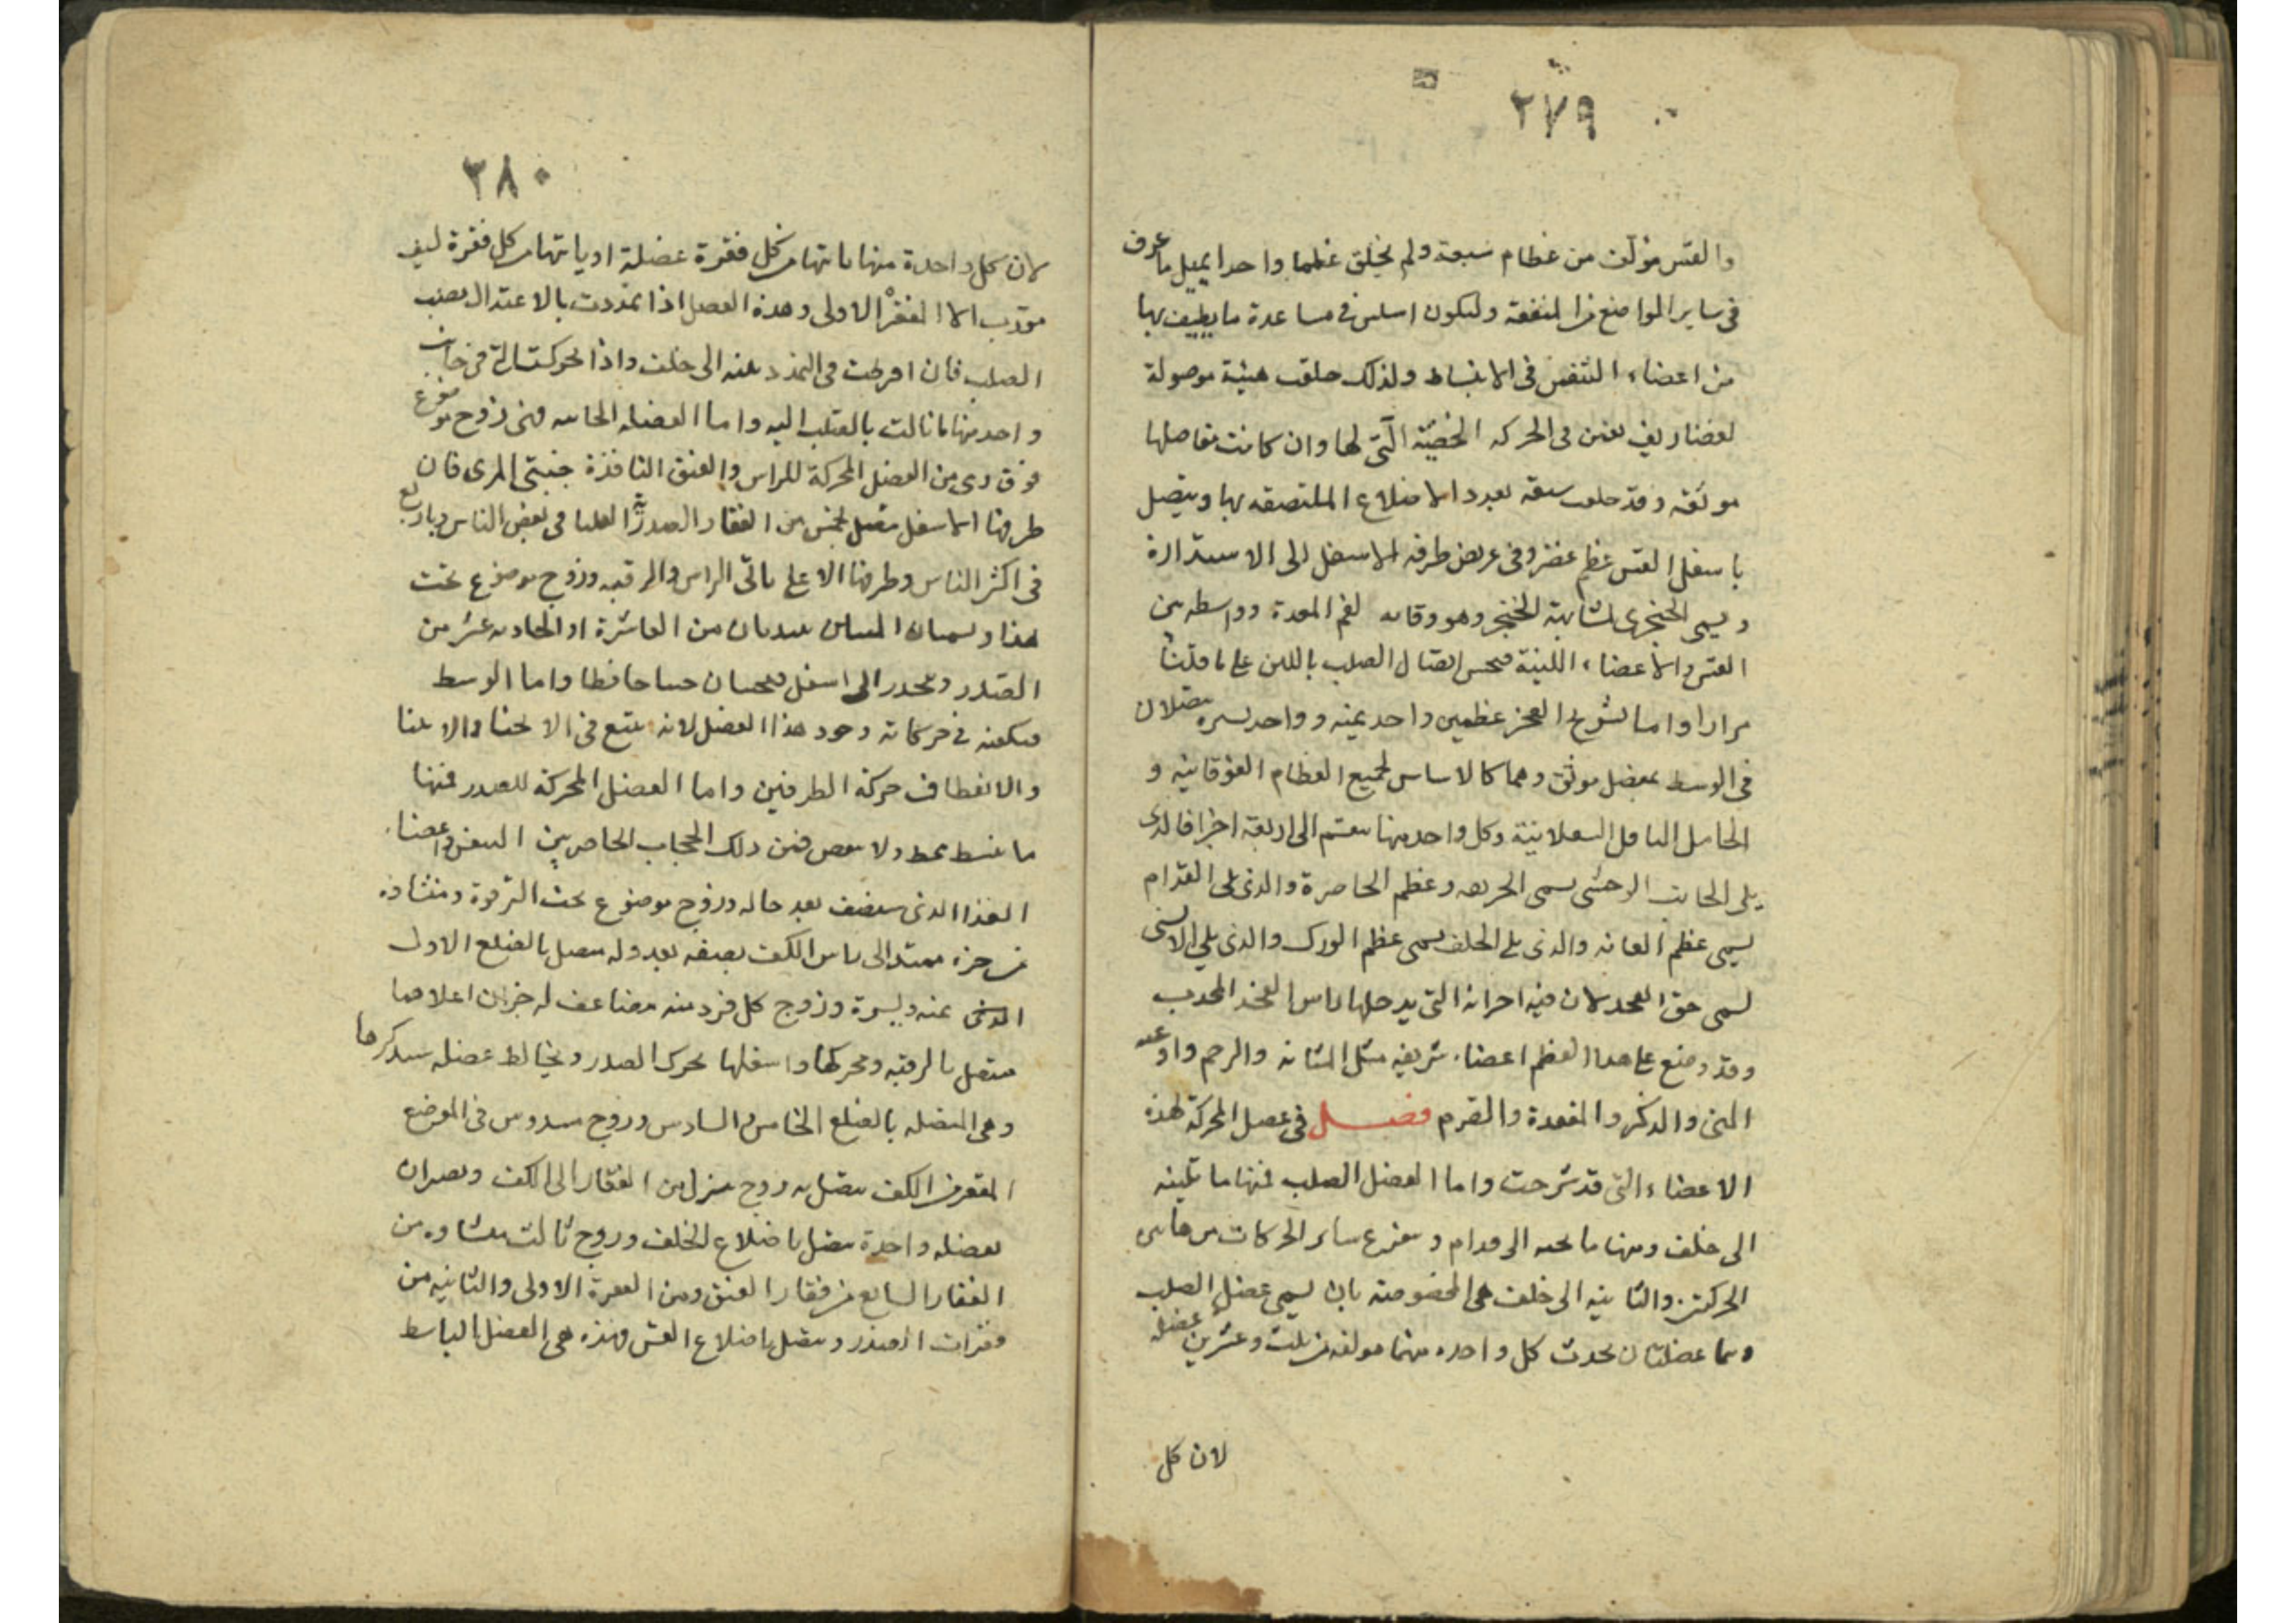 ٢٧٩
والقس مؤلف من عظام سبعة ولم يخلق عظما واحدا لمثل ما عرف
في ساير المواضع من المنفعة وليكون اسلس في مساعدة ما يطيف بها
من اعضاء التنفس في الانبساط ولذلك خلقت هشة موصولة
بغضاريف تعين في الحركة الخفية التي لها وان كانت مفاصلها
موثقة وقد خلقت سبعة بعدد الاضلاع الملتصقة بها ويتصل
باسفل القس عظم غضروفي عريض طرفه الاسفل الى الاستدارة
ويسمى الخنجرى لمشابهة الخنجر وهو وقاية لفم المعدة وواسطة بين
القس والاعضاء اللينة فيحسن اتصال الصلب باللين على ما قلنا
مرارا واما تشريح العجز عظمين واحد يمنة وواحد يسرة يتصلان
في الوسط بمفصل موثق وهما كالاساس لجميع العظام الفوقانية و
الحامل الناقل السفلانية وكل واحد منها ينقسم الى اربعة اجزا فالذى
يلى الجانب الوحشى يسمى الحرقفة وعظم الخاصرة والذى يلى القدام
يسمى عظم العانه والذى يلى الخلف يسمى عظم الورك والذى يلى الانسى
يسمى حق الفخذ لان فيه التي يدخلها راس الفخذ المحدب
وقد وضع على هذا العظم اعضاء شريفة مثل المثانه والرحم واوعيه
المنى والذكر والمقعدة والسرم فصل في عضل المحركة لهذه
الاعضاء التى قد شرحت واما العضل الصلب فمنها ما تثنيه
الى خلف ومنها ما تحنيه الى قدام وتتفرع ساير الحركات من هاتين
الحركتين والثانية الى خلف هى المخصوصة بان يسمى عضل الصلب
وهما عضلتان يحدث كل واحده منهما مولفه من ثلث وعشرين عضله
لان كل
٢٨٠
لان كل واحدة منها ياتيها من كل فقرة عضلة او ياتيها من كل فقرة ليف
مورب الا الفقرة الاولى وهذه العضل اذا تمددت بالاعتدال نصب
الصلب فان افرطت في التمدد ثنته الى خلف واذا تحركت التى في جانب
واحد منها مالت بالصلب اليه واما العضلة الحانية فهى زوج موضوع
فوق وهى من العضل المحركة للراس والعنق النافذة جنبتى المرى فان
طرفها الاسفل متصل بخمس من الفقار الصدرية العليا في بعض الناس وباربع
في اكثر الناس وطرفها الاعلى ياتى الراس والرقبه وزوج موضوع تحت
هذا ويسميان المتنين يبتديان من العاشرة او الحادية عشر من
الصدر وينحدر الى اسفل فيحنيان حنيا خافضا واما الوسط
فيكفيه في حركاته وجود هذا العضل لانه يتبع في الانحنا والانثنا
والانعطاف حركة الطرفين واما العضل المحركة للصدر فمنها
ما يبسط فقط ولا يقبض فمن ذلك الحجاب الحاجز بين التنفس واعضاء
الغذا الذى سنصف بعد حاله وزوج موضوع تحت الترقوة ومنشاؤه
من جزء ممتد الى راس الكتف نصفه بعد وله متصل بالضلع الاول
الذى يمنه ويسرة وزوج كل فرد منه مضاعف له جزءان اعلاهما
متصل بالرقبه ومحركها واسفلها تحرك الصدر ويخالط عضله سنذكرها
وهى المتصله بالضلع الخامس والسادس وزوج مدسوس في الموضع
المقعر من الكتف يتصل به زوج ينزل من الفقار الى الكتف ويصيران
بعضله واحدة يتصل باضلاع الخلف وزوج ثالث منشاوه من
الفقار السابع من فقار العنق ومن الفقرة الاولى والثانيه من
فقرات الصدر ويتصل باضلاع القس فهذه هى العضل الباسط